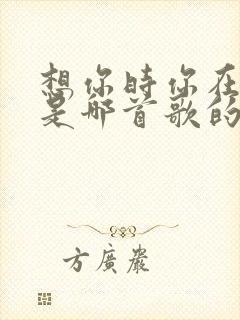 想你时你在
是哪首歌的
方廣嚴